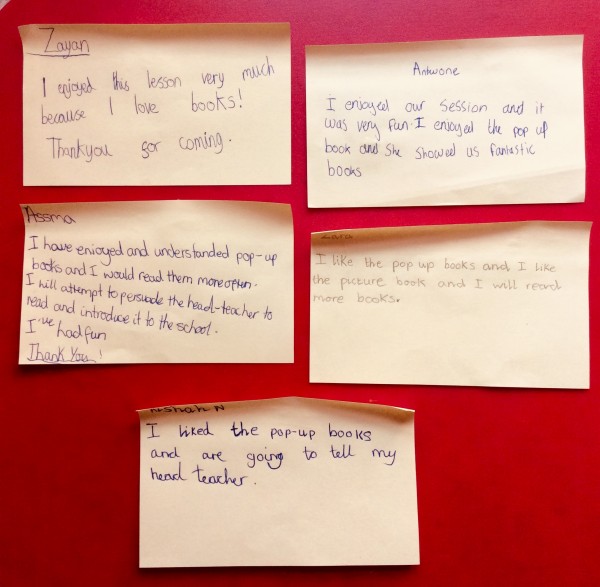 Zayan
I enjoyed this lesson very much
because I love books!
Thankyou for coming.
Antwone
I enjoyed our session and it
was very fun. I enjoyed the pop up
book and she showed us fantastic
books
Assma
I have enjoyed and understanded pop-up
books and I would read them more often.
I will attempt to persuade the head-teacher to
read and introduce it to the school.
I've had fun
Thank You!
Zara
I like the pop up books and I like
the picture book and I will read
more books.
I liked the pop-up books
and are going to tell my
head teacher.